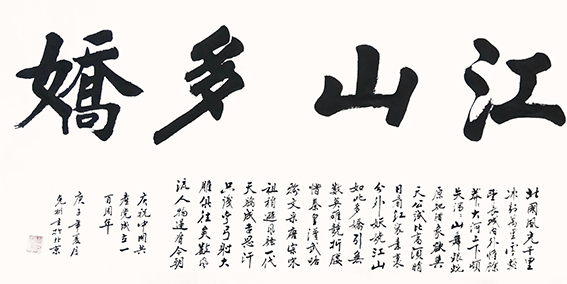 江山多嬌
北國風光千里
冰封萬里雪飄
望長城內外惟餘
莽莽大河上下頓
失滔滔山舞銀蛇
原馳蠟象欲與
天公試比高須晴
日看紅裝素裹
分外妖嬈江山
如此多嬌引無
數英雄競折腰
惜秦皇漢武略
輸文采唐宗宋
祖稍遜風騷一代
天驕成吉思汗
只識彎弓射大
雕俱往矣數風
流人物還看今朝
慶祝中國共
產黨成立一
百周年
庚子年夏月
書於北京